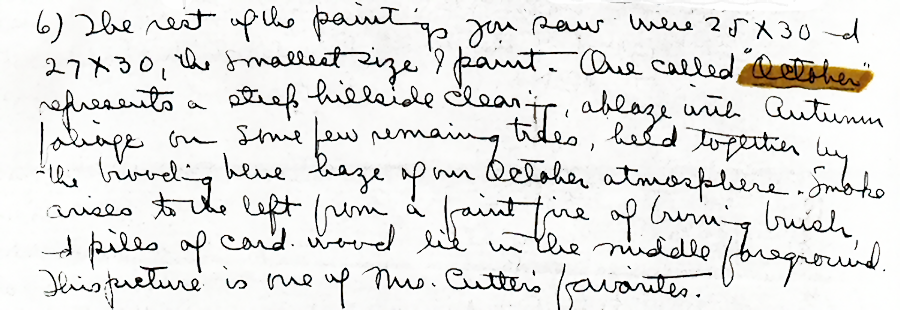 6) The rest of the paintings you saw were 25 X 30 and
27 X 30, the smallest size I paint. One called "October"
represents a steep hillside clearing, ablaze with Autumn
foliage on some few remaining trees, held together by
the brooding blue haze of our October atmosphere. Smoke
arises to the left from a faint fire of burning brush,
and piles of cord-wood lie in the middle foreground.
This picture is one of Mrs. Cutter's favorites.